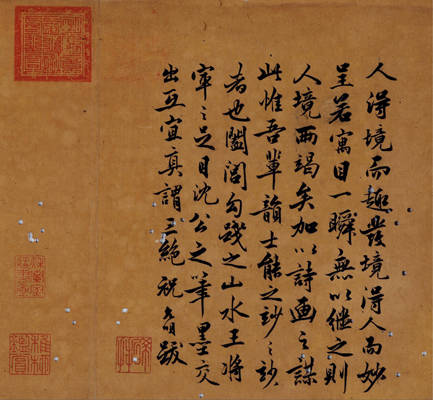 人得境而趣發境得人而妙
呈若寓目一瞬無以繼之則
人境兩竭矣加以詩画之謀
此惟吾輩韻士能之玅之玅
者也闔閭勾踐之山水王將
之足目沈公之筆墨交
出互宜真謂三絕祝跋